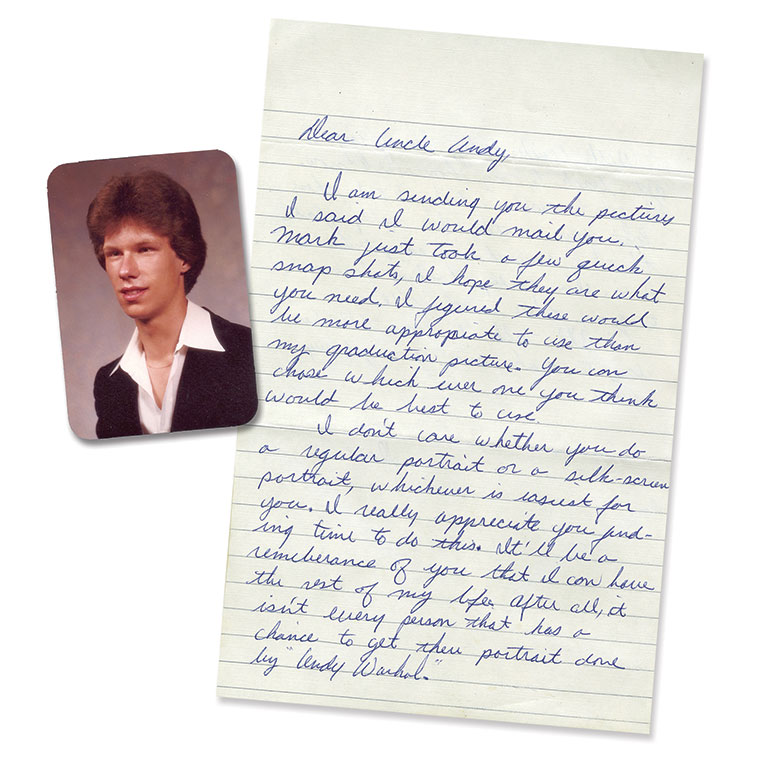 Dear Uncle Andy,
I am sending you the pictures
I said I would mail you.
Mark just took a few quick
snap shots, I hope they are what
you need. I figured these would
be more appropiate to use than
my graduation picture. You can
chose which ever one you think
would be best to use.
I don't care whether you do
a regular portrait or a silk-screen
portrait, whichever is easiest for
you. I really appreciate you find-
ing time to do this. It'll be a
rememberance of you that I can have
the rest of my life. After all, it
isn't every person that has a
chance to get their portrait done
by "Andy Warhol."